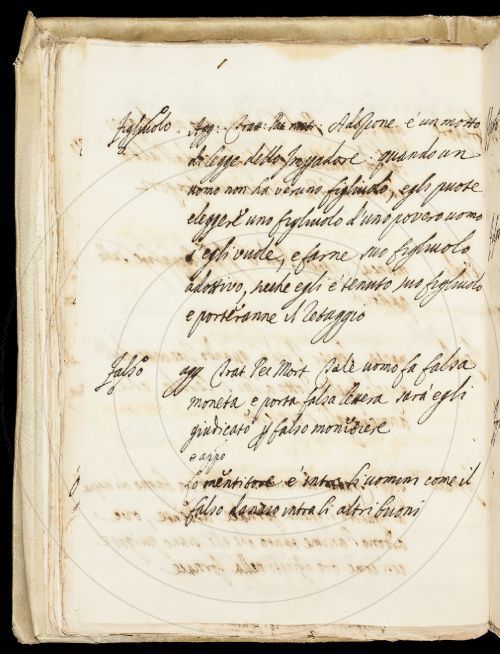 figliuolo Agg: Trat: Pec mort: Adozione è un motto
di legge dello Imperadore quando un
uomo non ha veruno figliuolo, egli puote
eleggere uno figliuolo d'uno povero uomo
s'egli vuole, e farne suo figliuolo
adottivo, sicchè egli è tenuto suo figliuolo
e porteranne il retaggio
falso agg Trat Pec Mort Tale uomo fa falsa
moneta e porta falsa lettera sarà egli
giudicato falso monisiere
e appo
lo mentitore è intra li uomini come il
falso danaio intra li altri buoni